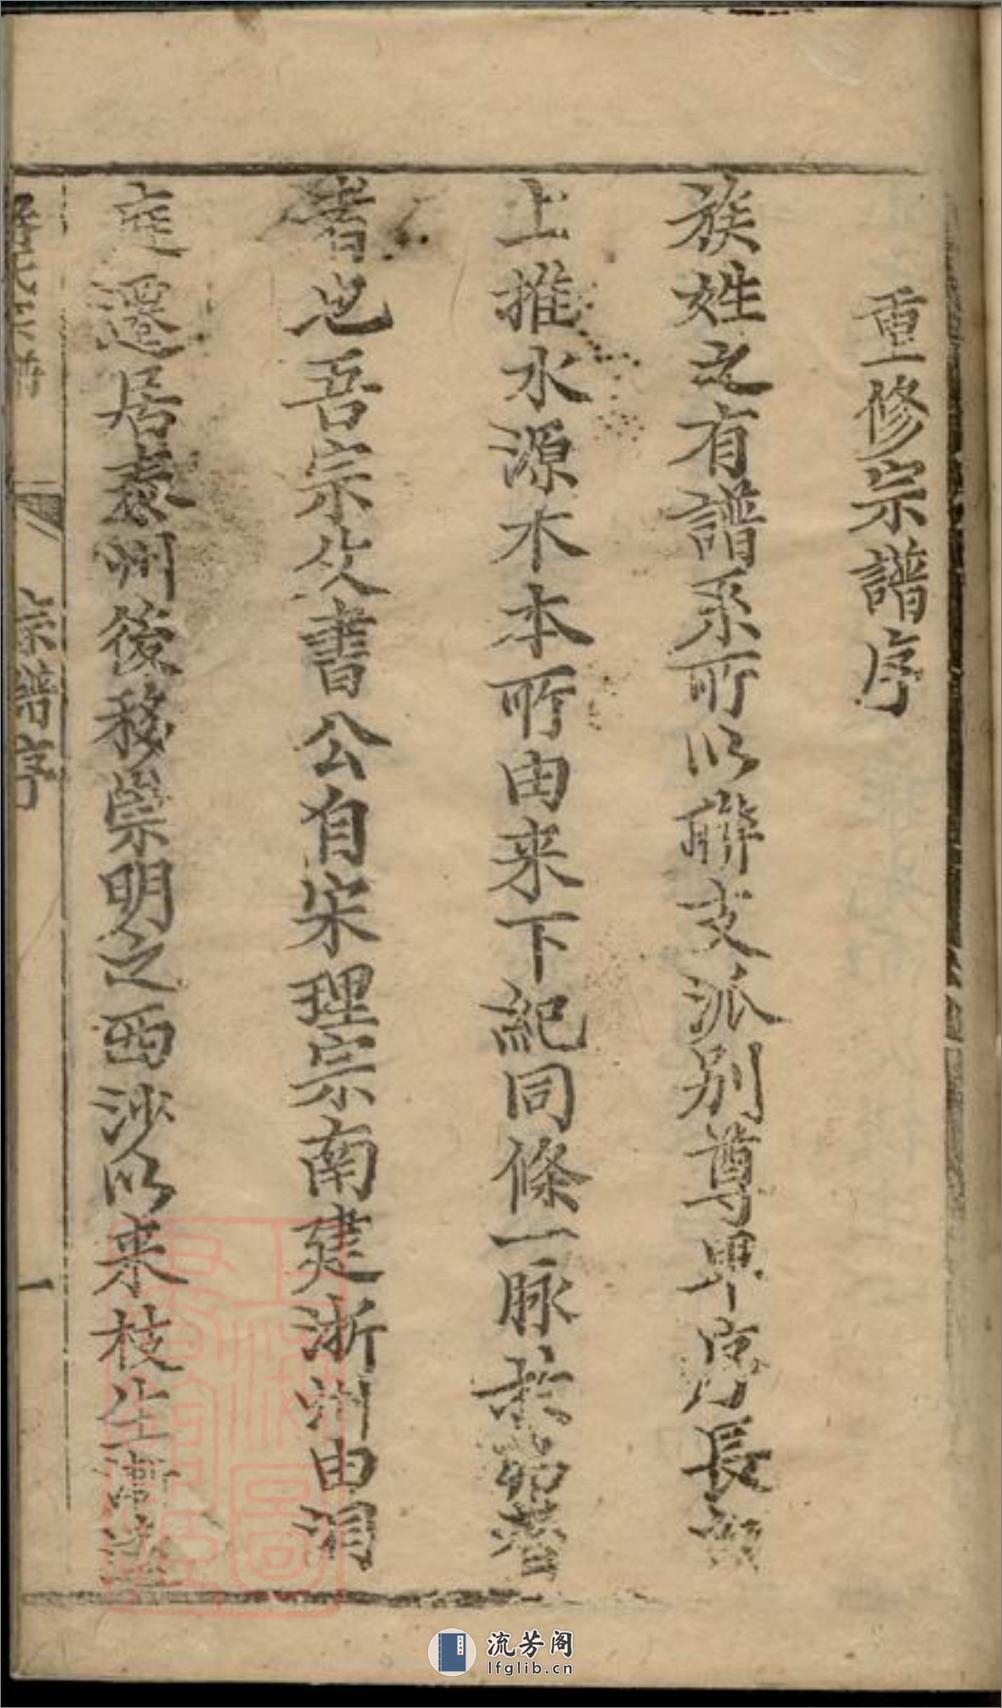 重修宗譜序
族姓之有譜系所以聯支派别尊卑序長幼
上推水源木本所由来下紀同條一脉於昭穆
者也吾宗文書公自宋理宗南建浙州由洞
庭遷居泰州後移崇明之西沙以来枝生漸
氏宗譜
宗譜序
一
流芳阁
lfglib.cn